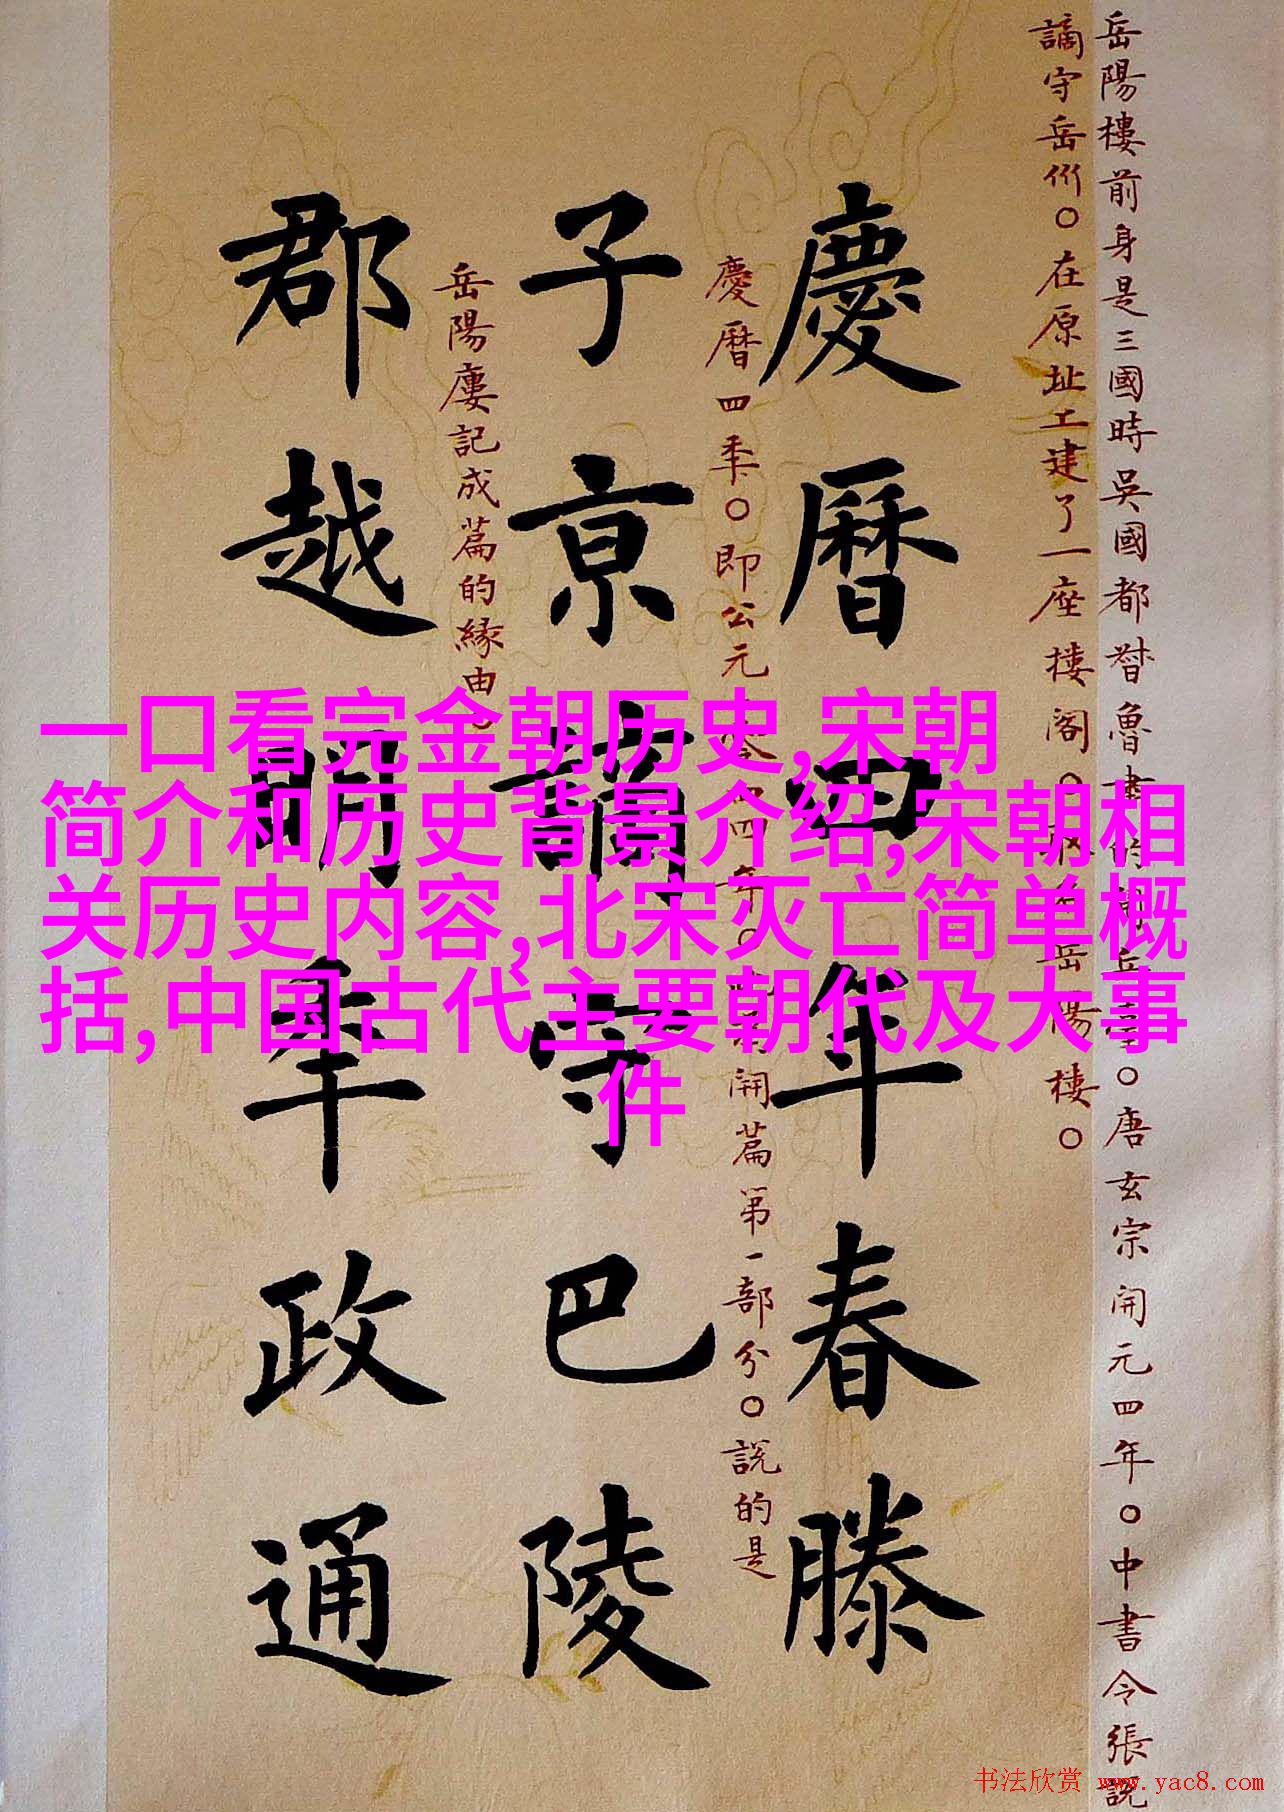 一口看完金朝历史,宋朝
简介和历史背景介绍,宋朝相
关历史内容,北宋灭亡简单概
括,中国古代主要朝代及大事
件
岳陽樓前身是三國時吳國都督魯○唐玄宗開元四年○中書令張說
謫守岳州○在原址工建了一座樓閣○岳陽樓○
慶曆四年春滕
慶曆四年○即公元四年開篇第一部分○說的是
子京謫守巴陵
岳陽廔記成篇的緣由
郡越明年政通
书法欣赏 www.yac8.com